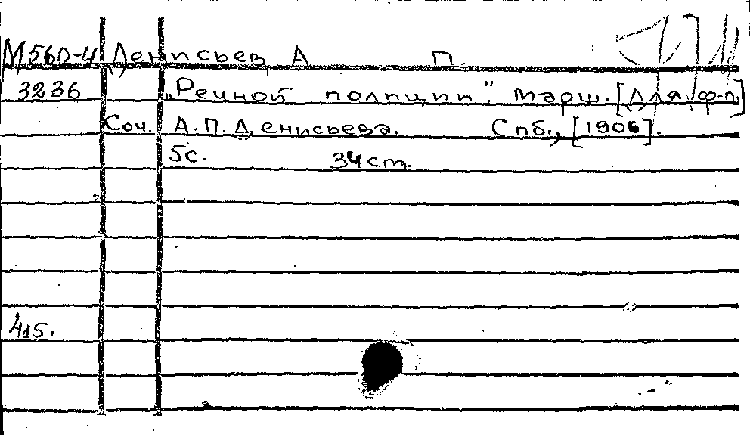 М560-4 Денисьев А П
3236 „Речной полиции". Марш. [Для ф-п.]
Соч. А.П. Денисьева. Спб., [1906].
5с. 34 cm.
415.